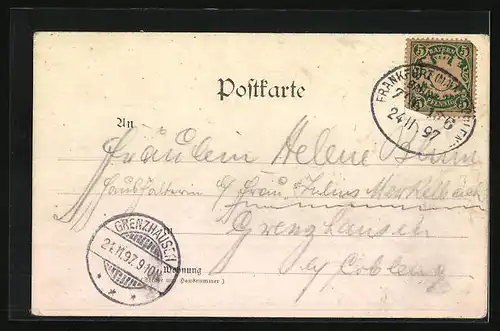 5 BAYERN 5
PFENNIG
FRANKFURT
24 11 97
Postkarte
An
Fräulein Helene Blum
Haushälterin b/ Frau Julius Merkelbach
in
Grenzhausen
b/ Coblenz
GRENZHAUSEN
24.11.97. 9-10
Wohnung
(Straße und Hausnummer)